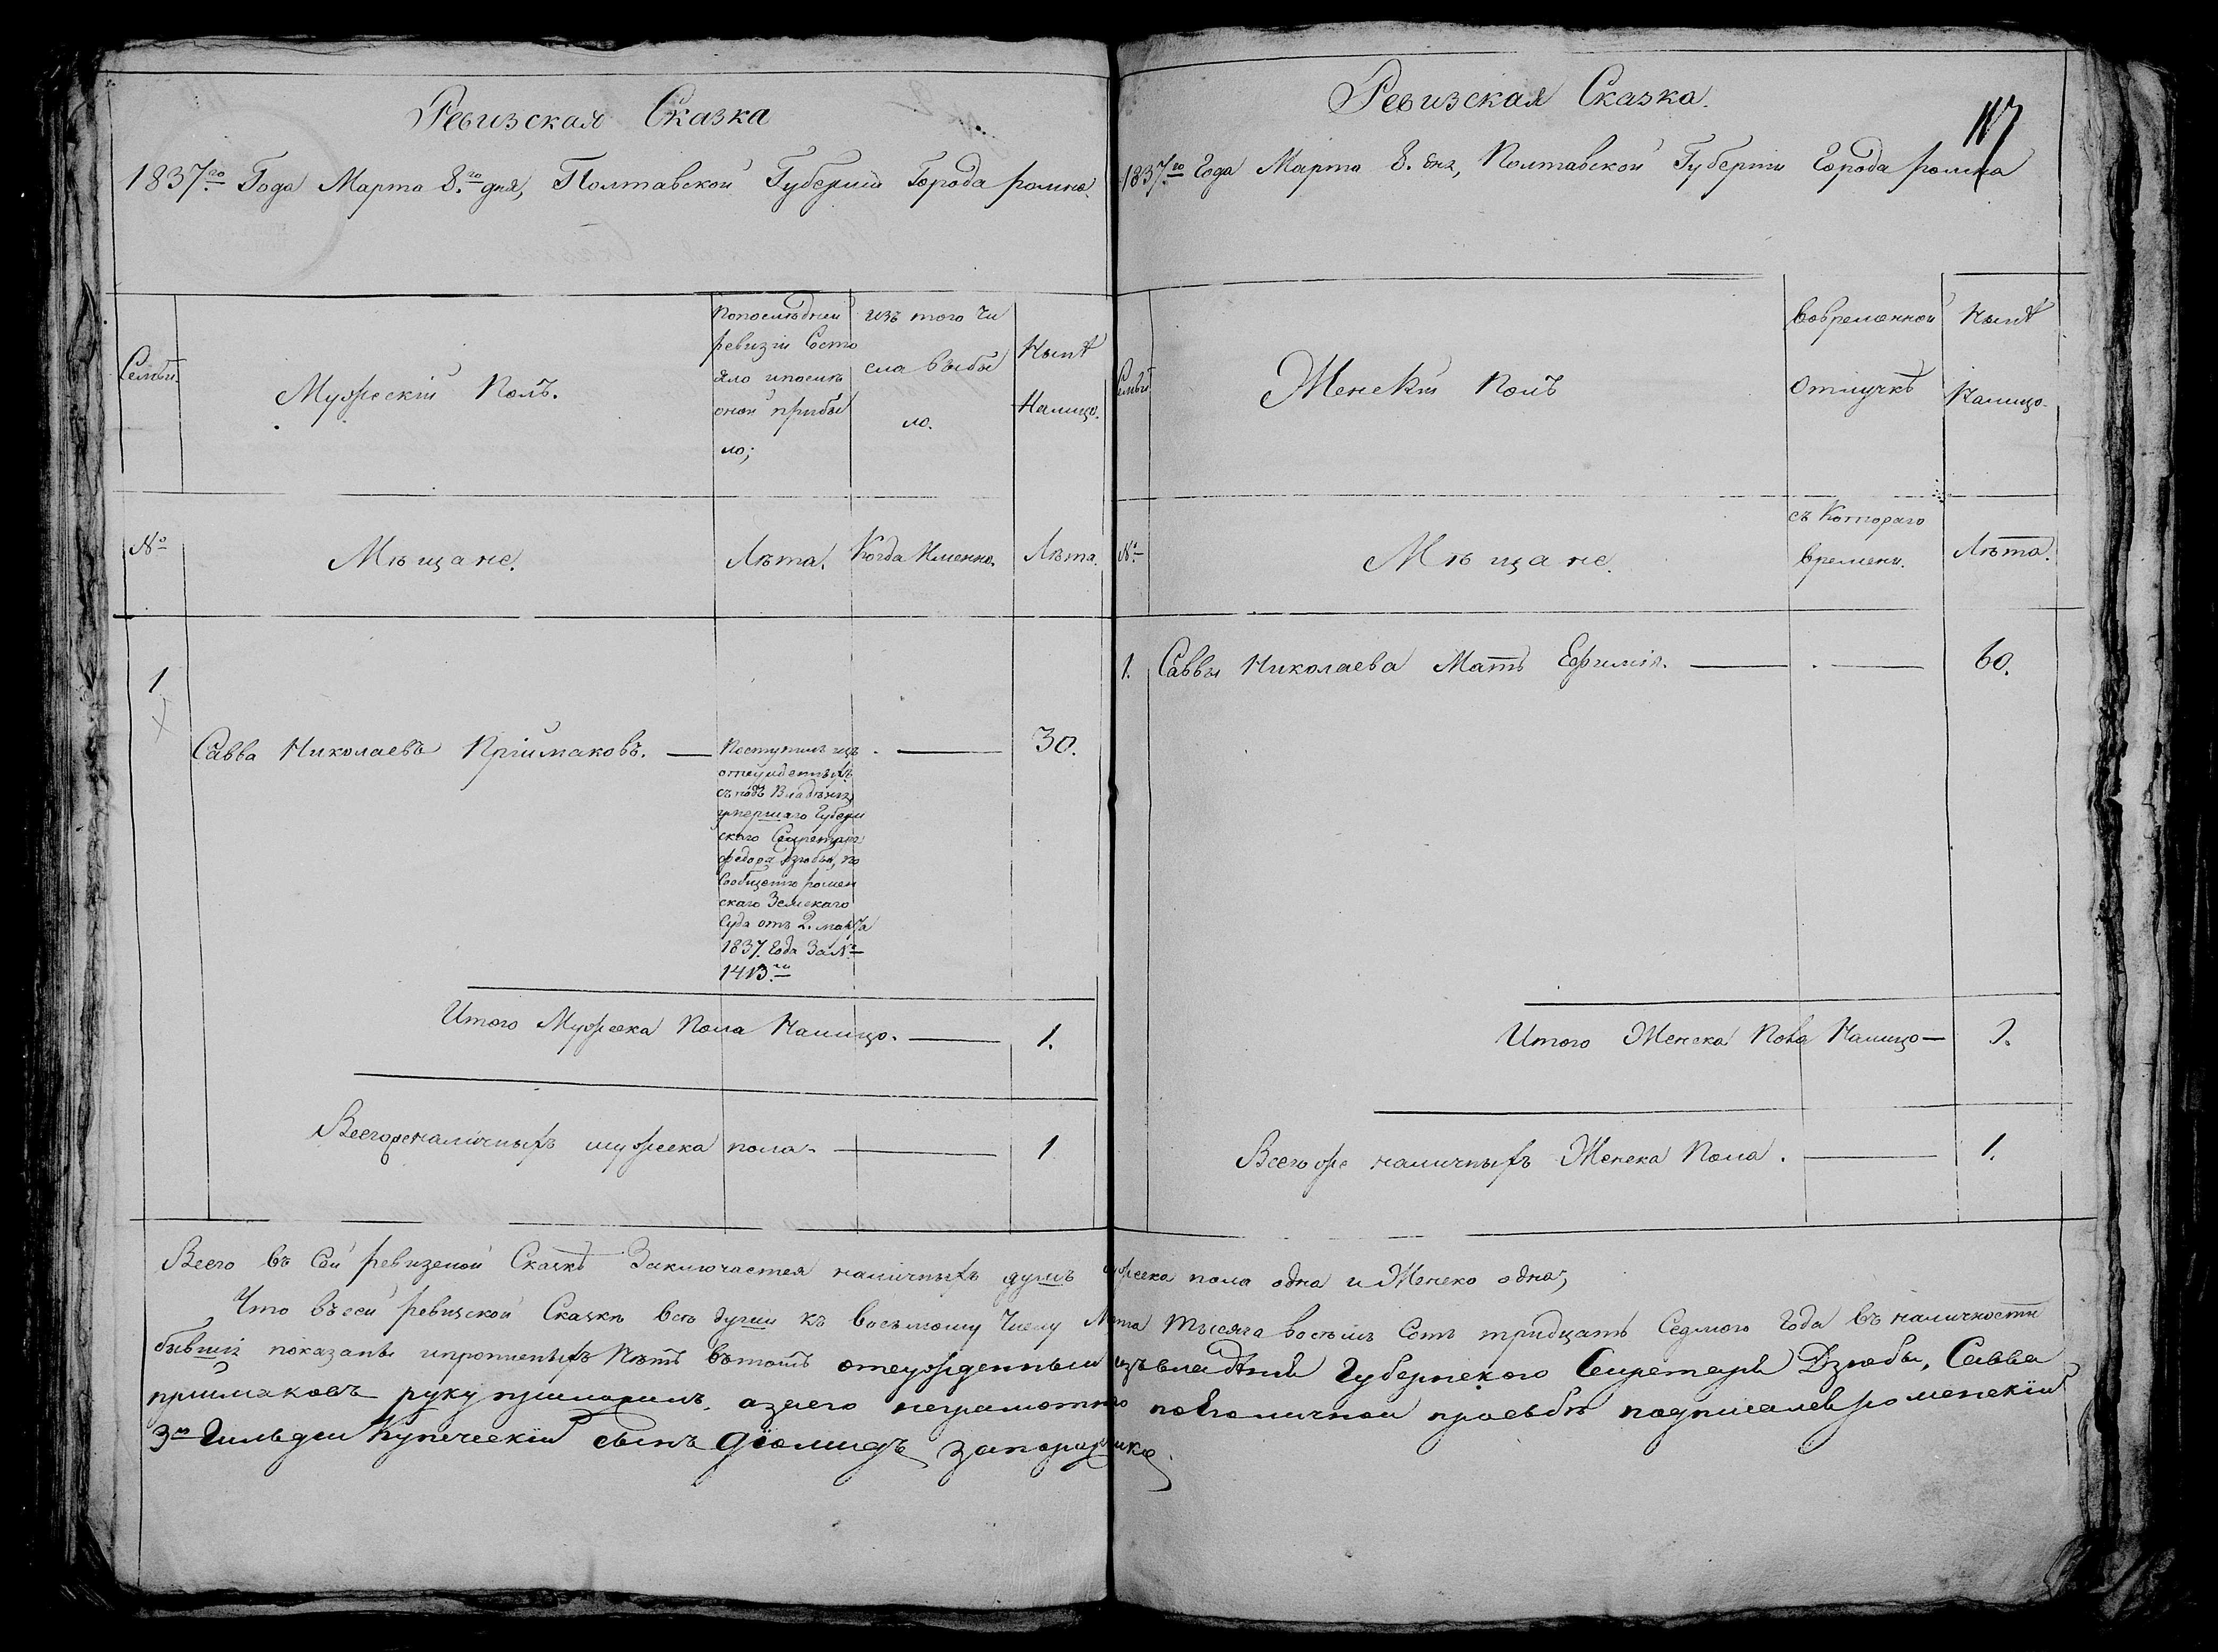 Ревизская Сказка
1837.го Года Марта 8.го дня, Полтавской Губернии Города ромна.
Семьи.
Мужескій Полъ.
Попоследней
ревизіи Состо
яло ипослѣ
оной прибы
ло;
изъ того Чи
сла выбы
ло.
Нынѣ
Налицо.
№
Мѣщане.
Лѣта.
Когда Именно.
Лѣта.
1
Савва Николаевъ Пріймаковъ.
30.
Поступилъ изъ
отчужденныхъ
съ подъ Владѣнія
умершаго Губерн
скаго Секретаря
федора Дзюбы, по
Сообщенію ромен
скаго Земскаго
Суда отъ 2. марта
1837. Года За №
1413.мъ
Итого Мужеска Пола Налицо. 1.
Всегоженаличныхъ мужеска пола. 1
Ревизская Сказка.
117
1837.го Года Марта 8. дня, Полтавской Губерніи Города ромна
Семьи
Женскій Полъ
Вовременной
Отлучкѣ
Нынѣ
Налицо.
№
Мѣщане.
съ Котораго
времени.
Лѣта.
1. Саввы Николаева Мать Ефимія. 60.
Итого Женска Пола Налицо 1.
Всегоже наличныхъ Женска Пола. 1.
Всего въ Сей ревизской Сказкѣ Заключается наличныхъ душъ мужеска пола одна и Женско одна;
Что въсей ревизской Сказкѣ всѣ души къ восьмому Числу Марта тысяча восемь Сотъ тридцать Седмого Года въ наличности
бывшія показаны ипрописныхъ Нѣтъ вътомъ отчужденный изъвладѣнія Губернского Секретаря Дзюбы, Савва
приймаковъ руку приложилъ. азаего неграмотного поеголичной прозьбѣ подписалсяроменскій
3й Гильдіи Купеческій сынъ Діомидъ